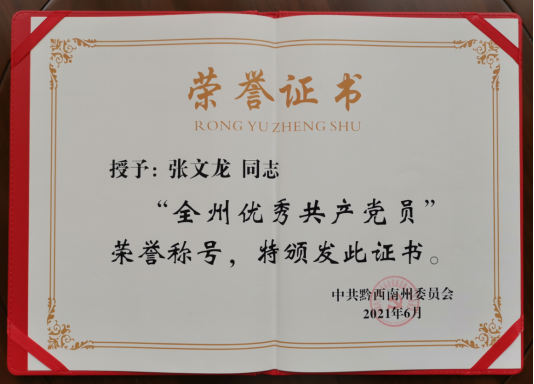 荣誉证书
RONG YU ZHENG SHU
授予：张文龙 同志
“全州优秀共产党员”
荣誉称号，特颁发此证书。
中共黔西南州委员会
2021年6月